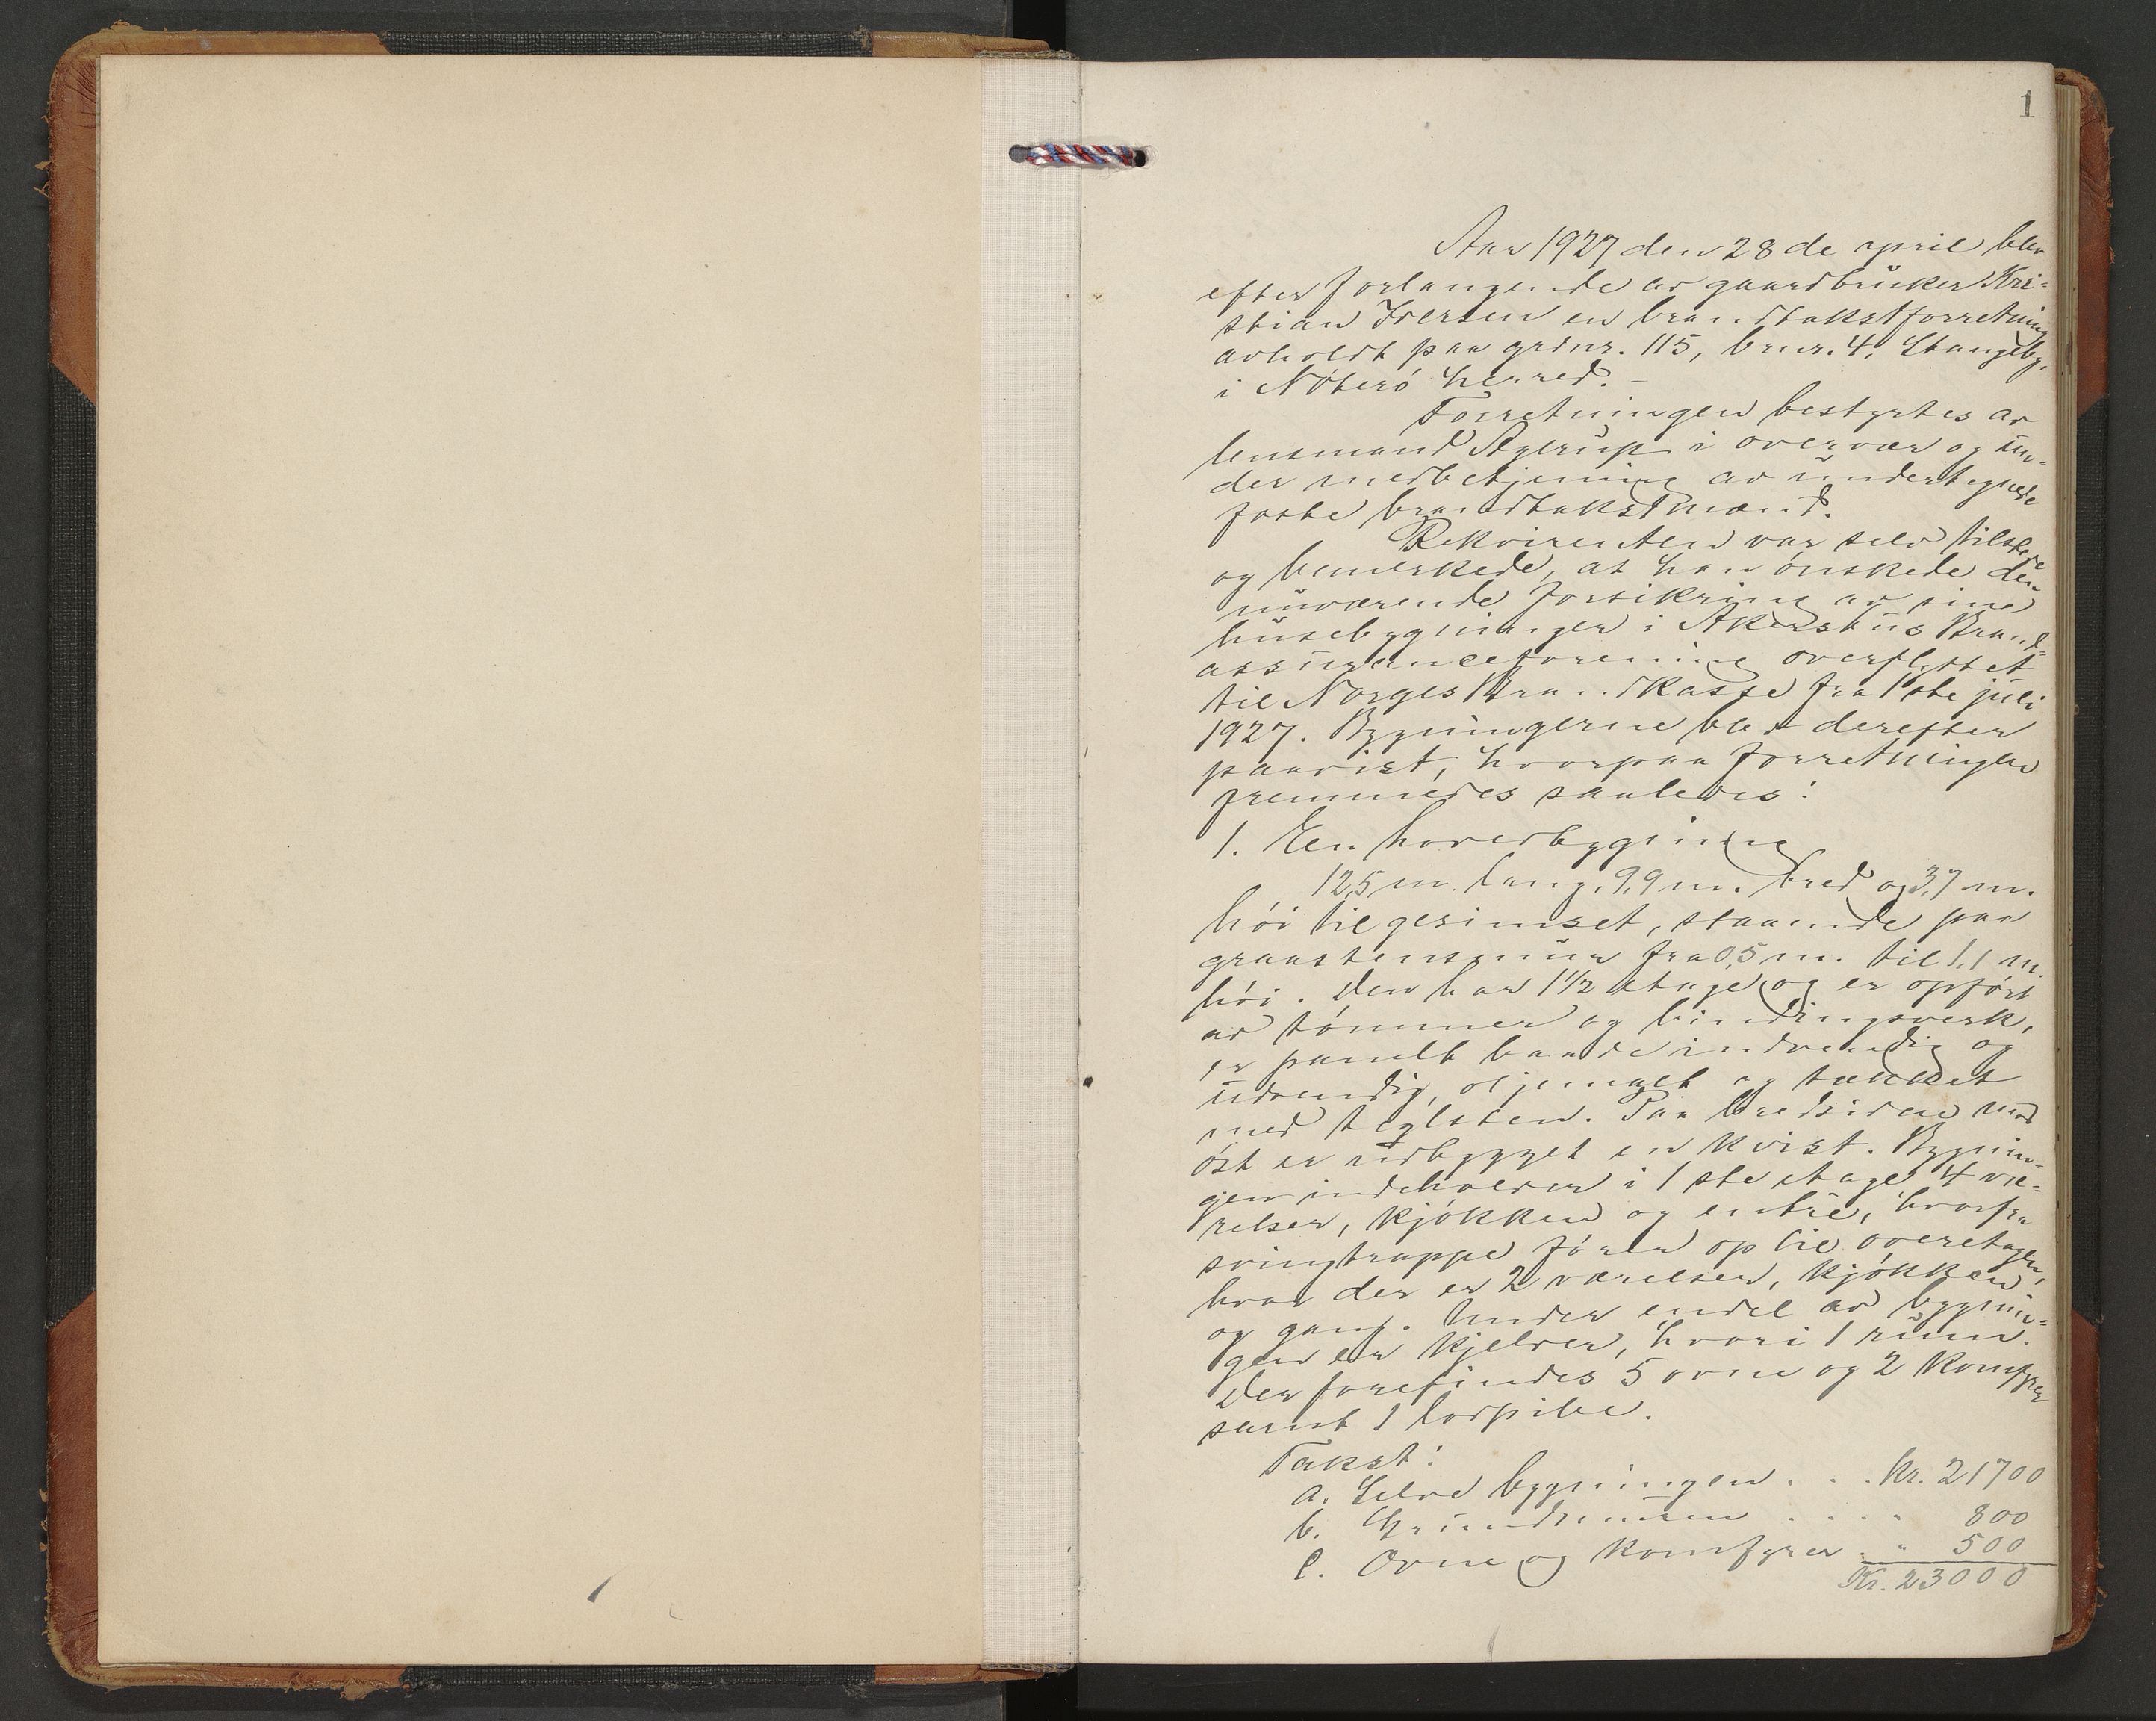 1
Aar 1927 den 28de april blev
efter forlangende av gaardbruker Kri-
stian Iversen en brandtakstforretning
avholdt paa grdnr. 115, brnr. 4, Stangeby,
i Nöterö herred. -
Forretningen bestyrtes av
lensmand Agerup i overvær og un-
der medbetjening av undertegnede
faste brandtakstmænd.
Rekvirenten var selv tilstede
og bemerkede, at han önskede den
nuværende forsikring av sine
husebygninger i Akershus Brand-
assuranceforening overflyttet
til Norges Brandkasse fra 1ste juli
1927. Bygningerne blev derefter
paavist, hvorpaa forretningen
fremmedes saaledes:
1. En hovedbygning
12,5 m. lang, 9,9 m. bred og 3,7 m.
höi til gesimset, staaende paa
graastensmur fra 0,5 m. til 1,1 m.
höi. Den har 1 1/2 etage og er opfört
av tömmer og bindingsverk,
er panelt baade indvendig og
udvendig, oljemalt og tækket
med teglsten. Paa bredsiden mod
öst er udbygget en kvist. Bygnin-
gen indeholder i 1ste etage 4 væ-
relser, kjökken og entre, hvorfra
svingtrappe förer op til overetagen,
hvor der er 2 værelser, kjökken
og gang. Under endel av bygnin-
gen er kjelder, hvori 1 rum.
Der forefindes 5 ovne og 2 komfyrer
samt 1 lodpibe.
Takst:
a. Selve bygningen . . . Kr. 21700
b. Grundmuren . . . . " 800
c. Ovne og komfyrer . " 500
Kr. 23000